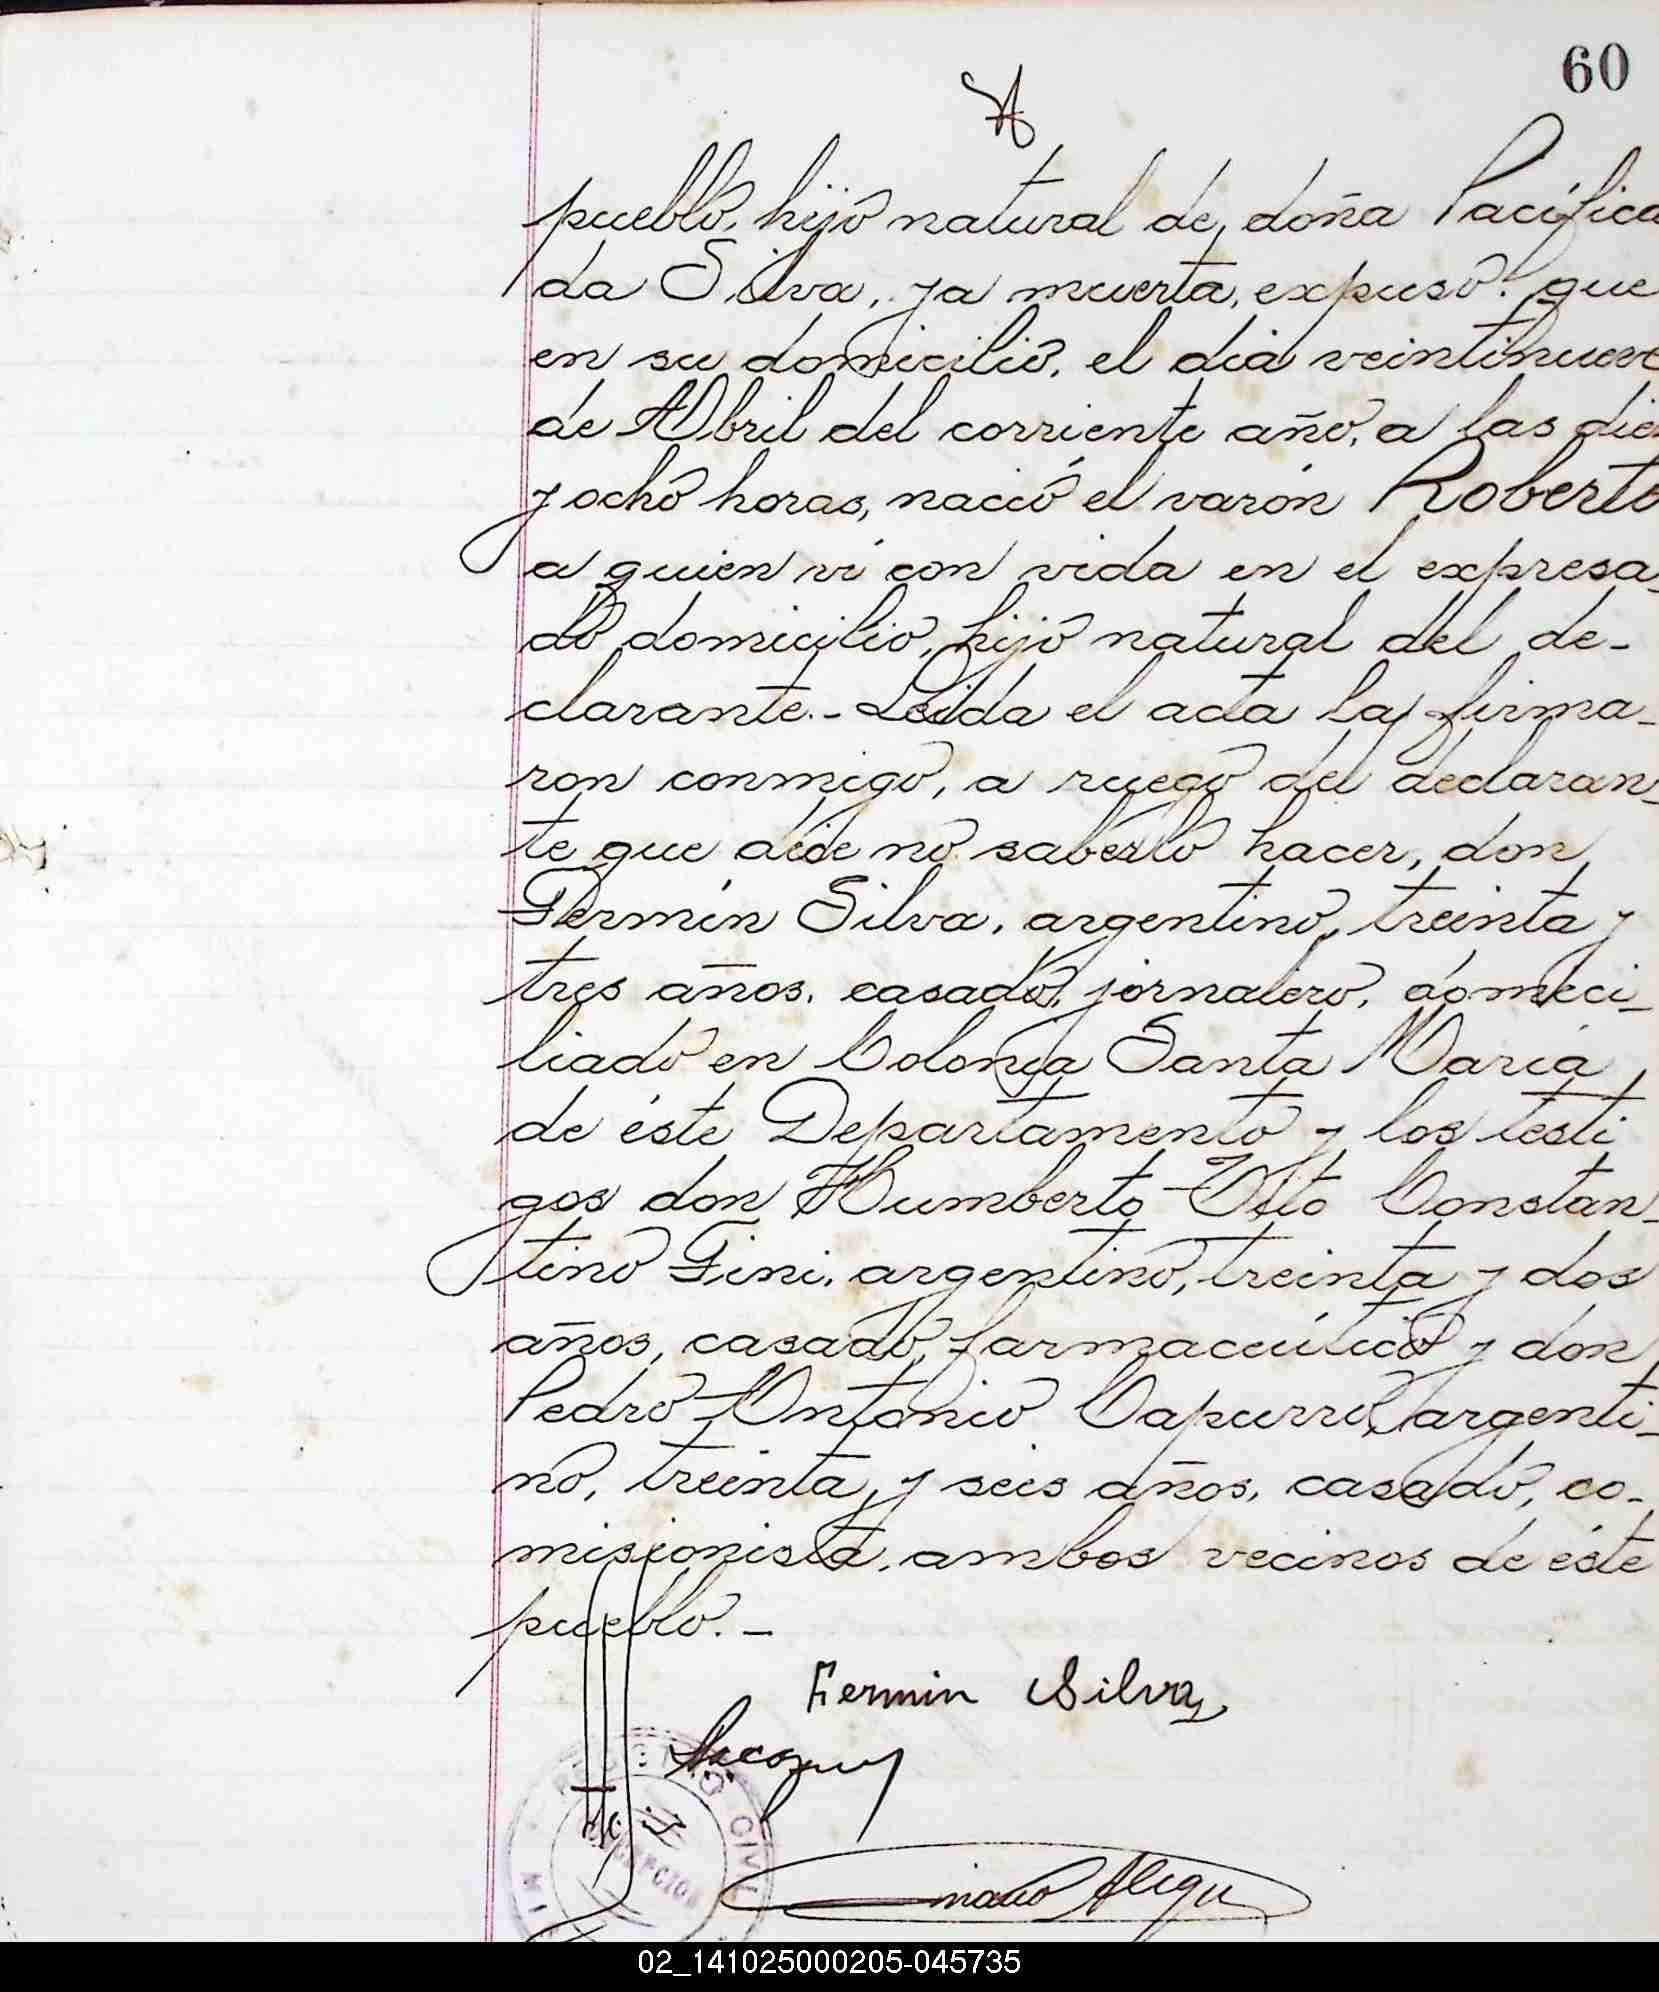 60
pueblo, hijo natural de doña Pacífica
da Silva, ya muerta, expuso: que
en su domicilio, el dia veintinueve
de Abril del corriente año, a las diez
y ocho horas, nació el varón Roberto
a quien ví con vida en el expresa-
do domicilio, hijo natural del de-
clarante.- Leída el acta la firma-
ron conmigo, a ruego del declaran-
te que dice no saberlo hacer, don
Fermín Silva, argentino, treinta y
tres años, casado, jornalero, domici-
liado en Colonia Santa María
de éste Departamento y los testi
gos don Humberto Otto Constan-
tino Fini, argentino, treinta y dos
años, casado, farmacéutico y don
Pedro Antonio Capurro, argenti-
no, treinta y seis años, casado, co-
misionista, ambos vecinos de éste
pueblo.-
Fermin Silva
REGISTRO CIVIL
CONCEPCION
02_141025000205-045735